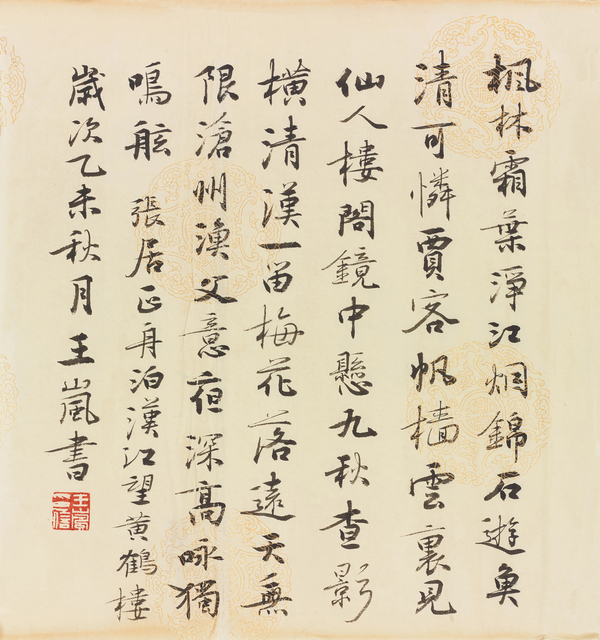 楓林霜葉淨江烟錦石遊魚
清可憐賈客帆檣雲裏見
仙人樓閣鏡中懸九秋查影
橫清漢一笛梅花落遠天無
限滄州漁父意夜深高咏獨
鳴舷 張居正舟泊漢江望黄鶴樓
歲次乙未秋月王嵐書